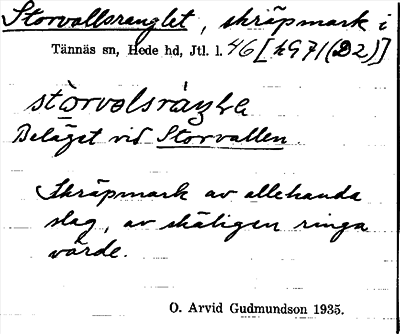 Storvallsranglet, skräpmark i
Tännäs sn, Hede hd, Jtl. l. 46 [hG71(D2)]
Beläget vid Storvallen.
Skräpmark av allehanda
slag, av skäligen ringa
värde.
O. Arvid Gudmundson 1935.